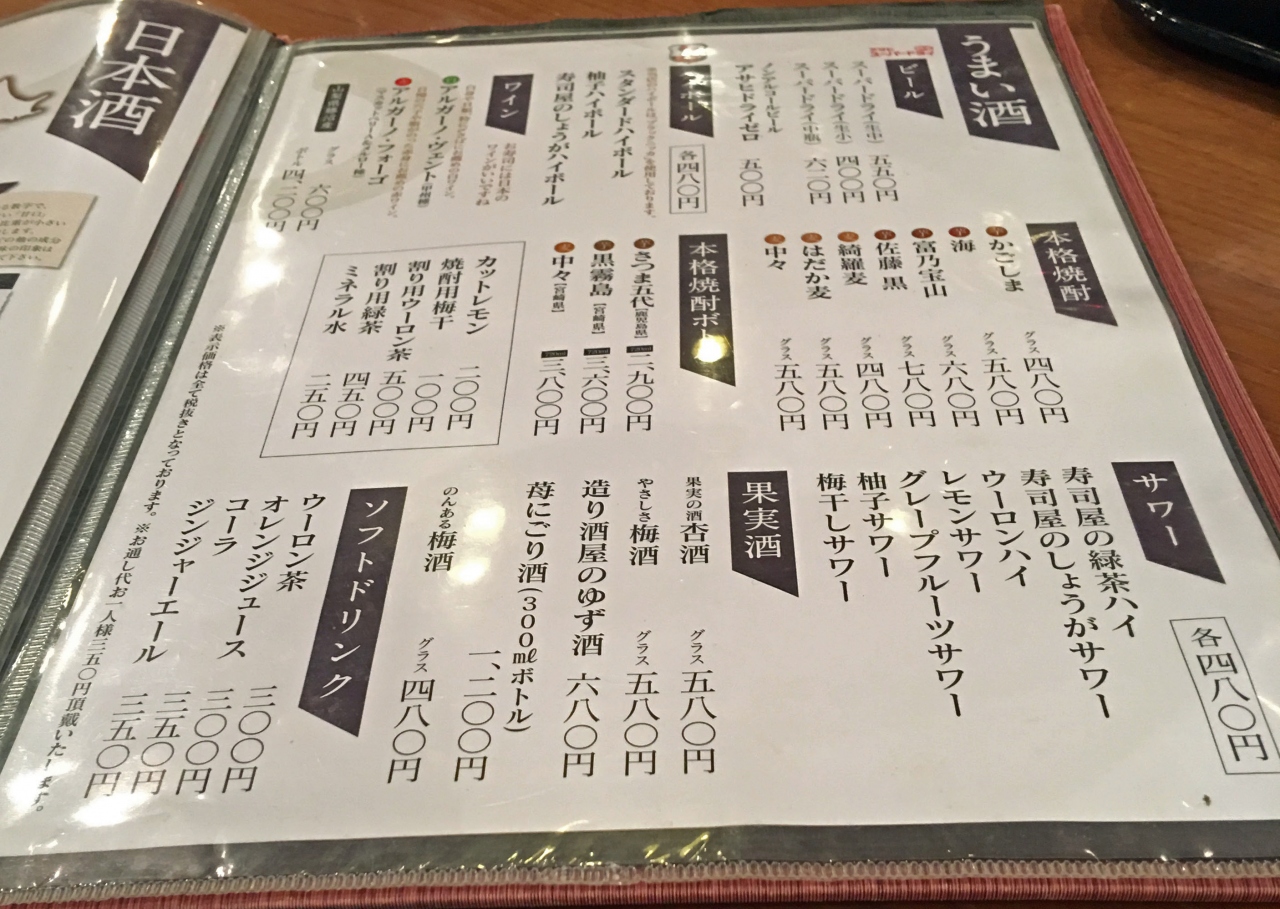 うまい酒
ビール
スーパードライ(生中) 五五〇円
スーパードライ(生小) 四〇〇円
スーパードライ(中瓶) 六二〇円
ノンアルコールビール
アサヒドライゼロ 五〇〇円
各四八〇円
スタンダードハイボール
柚子ハイボール
寿司屋のしょうがハイボール
ワイン
お寿司には日本の
ワインがいいですね
アルガーノ・ヴェント(甲州種)
アルガーノ・フォーゴ
グラス 六〇〇円
ボトル 四、二〇〇円
本格焼酎
芋 かごしま グラス 四八〇円
芋 海 グラス 五八〇円
芋 富乃宝山 グラス 六八〇円
芋 佐藤 黒 グラス 七八〇円
麦 綺羅麦 グラス 四八〇円
麦 はだか麦 グラス 五八〇円
麦 中々 グラス 五八〇円
本格焼酎ボトル
芋 さつま五代【鹿児島県】 二、九〇〇円
芋 黒霧島【宮崎県】 三、六〇〇円
麦 中々【宮崎県】 三、八〇〇円
カットレモン 二〇〇円
焼酎用梅干 一〇〇円
割り用ウーロン茶 五〇〇円
割り用緑茶 四五〇円
ミネラル水 二五〇円
サワー
各四八〇円
寿司屋の緑茶ハイ
寿司屋のしょうがサワー
ウーロンハイ
レモンサワー
グレープフルーツサワー
柚子サワー
梅干しサワー
果実酒
果実の酒 杏酒 グラス 五八〇円
やさしさ梅酒 グラス 五八〇円
造り酒屋のゆず酒 六八〇円
苺にごり酒(300㎖ボトル)
一、二〇〇円
のんある梅酒 グラス 四八〇円
ソフトドリンク
ウーロン茶 三〇〇円
オレンジジュース 三〇〇円
コーラ 三五〇円
ジンジャーエール 三五〇円
※表示価格は全て税抜きとなっております。 ※お通し代お一人様三五〇円頂戴いたします。
日本酒